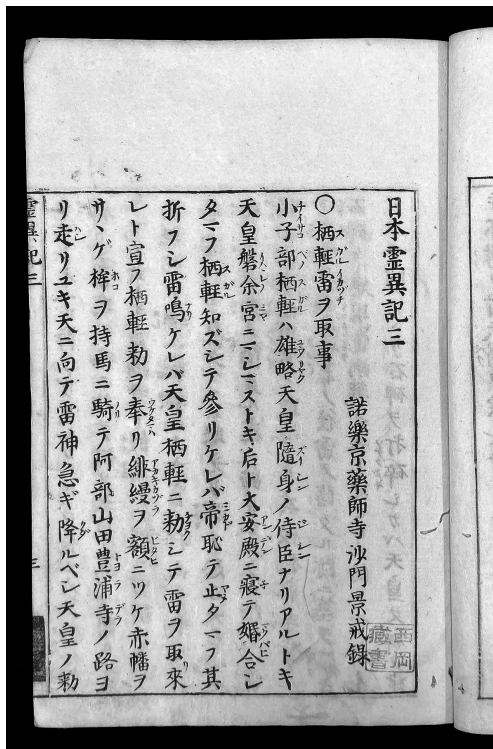 日本靈異記三
諾樂京藥師寺沙門景戒錄
西岡藏書
〇栖軽雷ヲ取事
小子部栖軽ハ雄略天皇隨身ノ侍臣ナリアルトキ
天皇磐余宮ニマシマストキ后ト大安殿ニ寢テ婚合シ
タマフ栖軽知ズシテ參リケレバ帝恥テ止タマフ其
折フシ雷鳴ケレバ天皇栖軽ニ勅シテ雷ヲ取來
レト宣フ栖軽勅ヲ奉リ緋縵ヲ額ニツケ赤幡ヲ
サヽゲ桙ヲ持馬ニ騎テ阿部山田豊浦寺ノ路ヨ
リ走リユキ天ニ向テ雷神急ギ降ルベシ天皇ノ勅
靈異記三
三